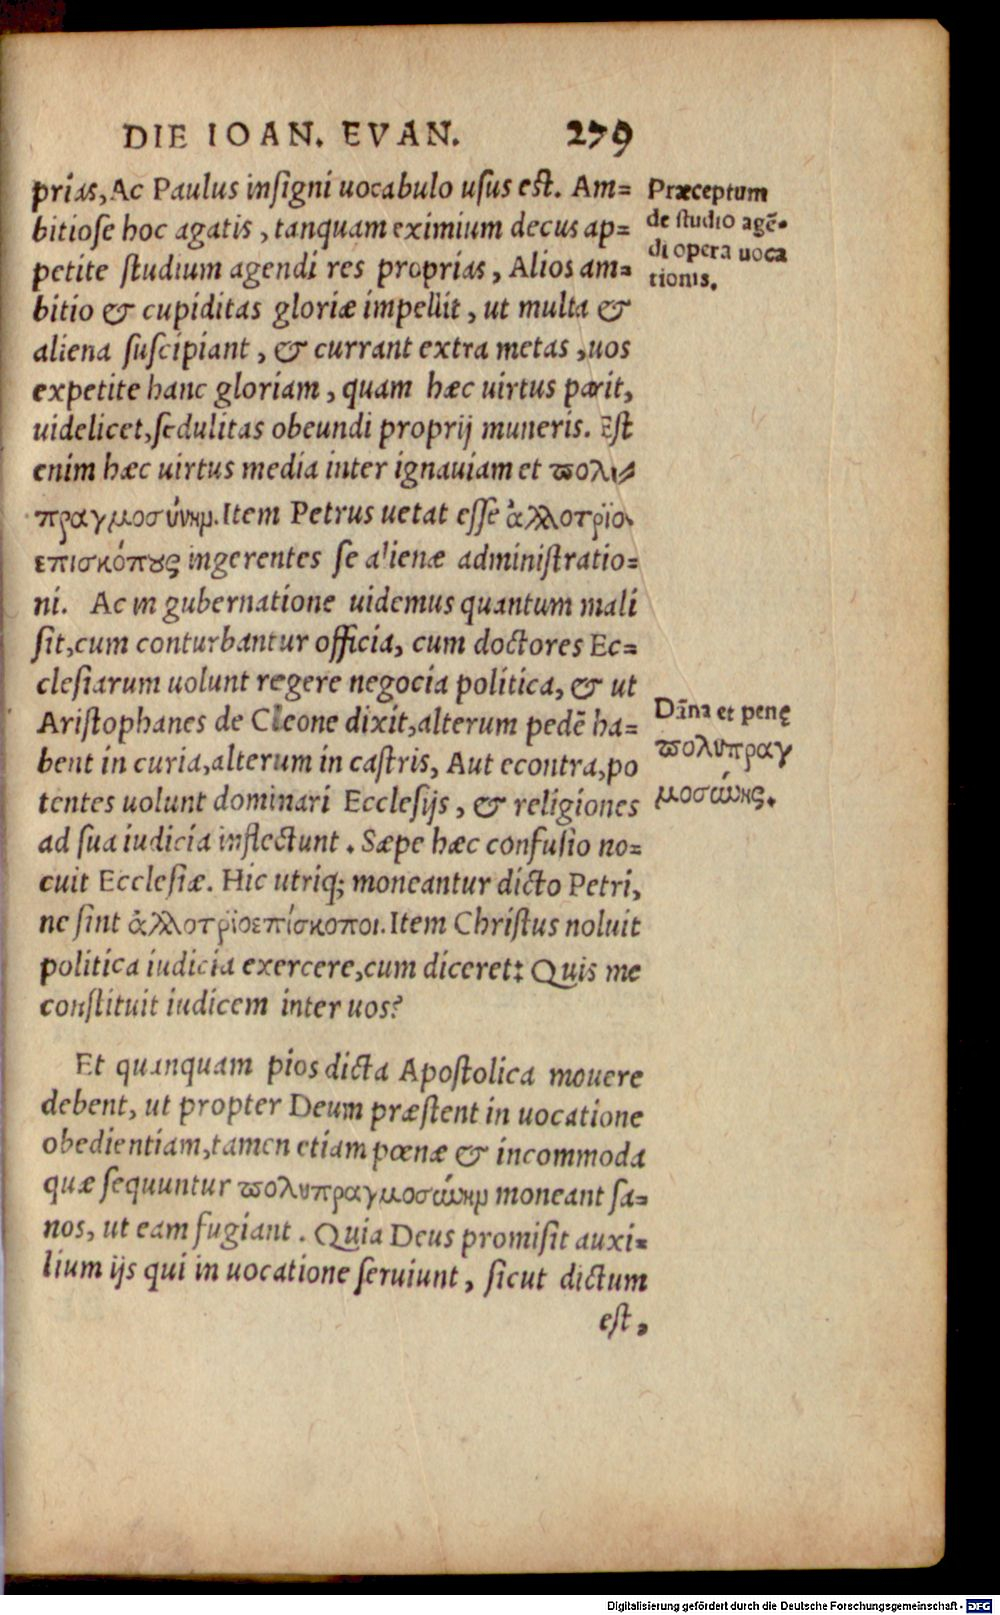 DIE IOAN. EVAN. 279
prias, Ac Paulus insigni uocabulo usus est. Am=
bitiose hoc agatis, tanquam eximium decus ap=
petite studium agendi res proprias, Alios am=
bitio & cupiditas gloriæ impellit, ut multa &
aliena suscipiant, & currant extra metas, uos
expetite hanc gloriam, quam hæc uirtus parit,
uidelicet, sedulitas obeundi proprij muneris. Est
enim hæc uirtus media inter ignauiam et πολι=
πραγμοσύνην. Item Petrus uetat esse ἀλλοτριο
επισκόπους ingerentes se alienæ administratio=
ni. Ac in gubernatione uidemus quantum mali
sit, cum conturbantur officia, cum doctores Ec=
clesiarum uolunt regere negocia politica, & ut
Aristophanes de Cleone dixit, alterum pedẽ ha=
bent in curia, alterum in castris, Aut econtra, po
tentes uolunt dominari Ecclesijs, & religiones
ad sua iudicia inflectunt. Sæpe hæc confusio no=
cuit Ecclesiæ. Hic utriq; moneantur dicto Petri,
ne sint ἀλλοτριοεπίσκοποι. Item Christus noluit
politica iudicia exercere, cum diceret: Quis me
constituit iudicem inter uos?
Et quanquam pios dicta Apostolica mouere
debent, ut propter Deum præstent in uocatione
obedientiam, tamen etiam pœnæ & incommoda
quæ sequuntur πολυπραγμοσύνην moneant sa=
nos, ut eam fugiant. Quia Deus promisit auxi=
lium ijs qui in uocatione seruiunt, sicut dictum
est,
Præceptum
de studio agẽ=
di opera uoca
tionis.
Dãna et penę
πολυπραγ
μοσύνης.
Digitalisierung gefördert durch die Deutsche Forschungsgemeinschaft - DFG